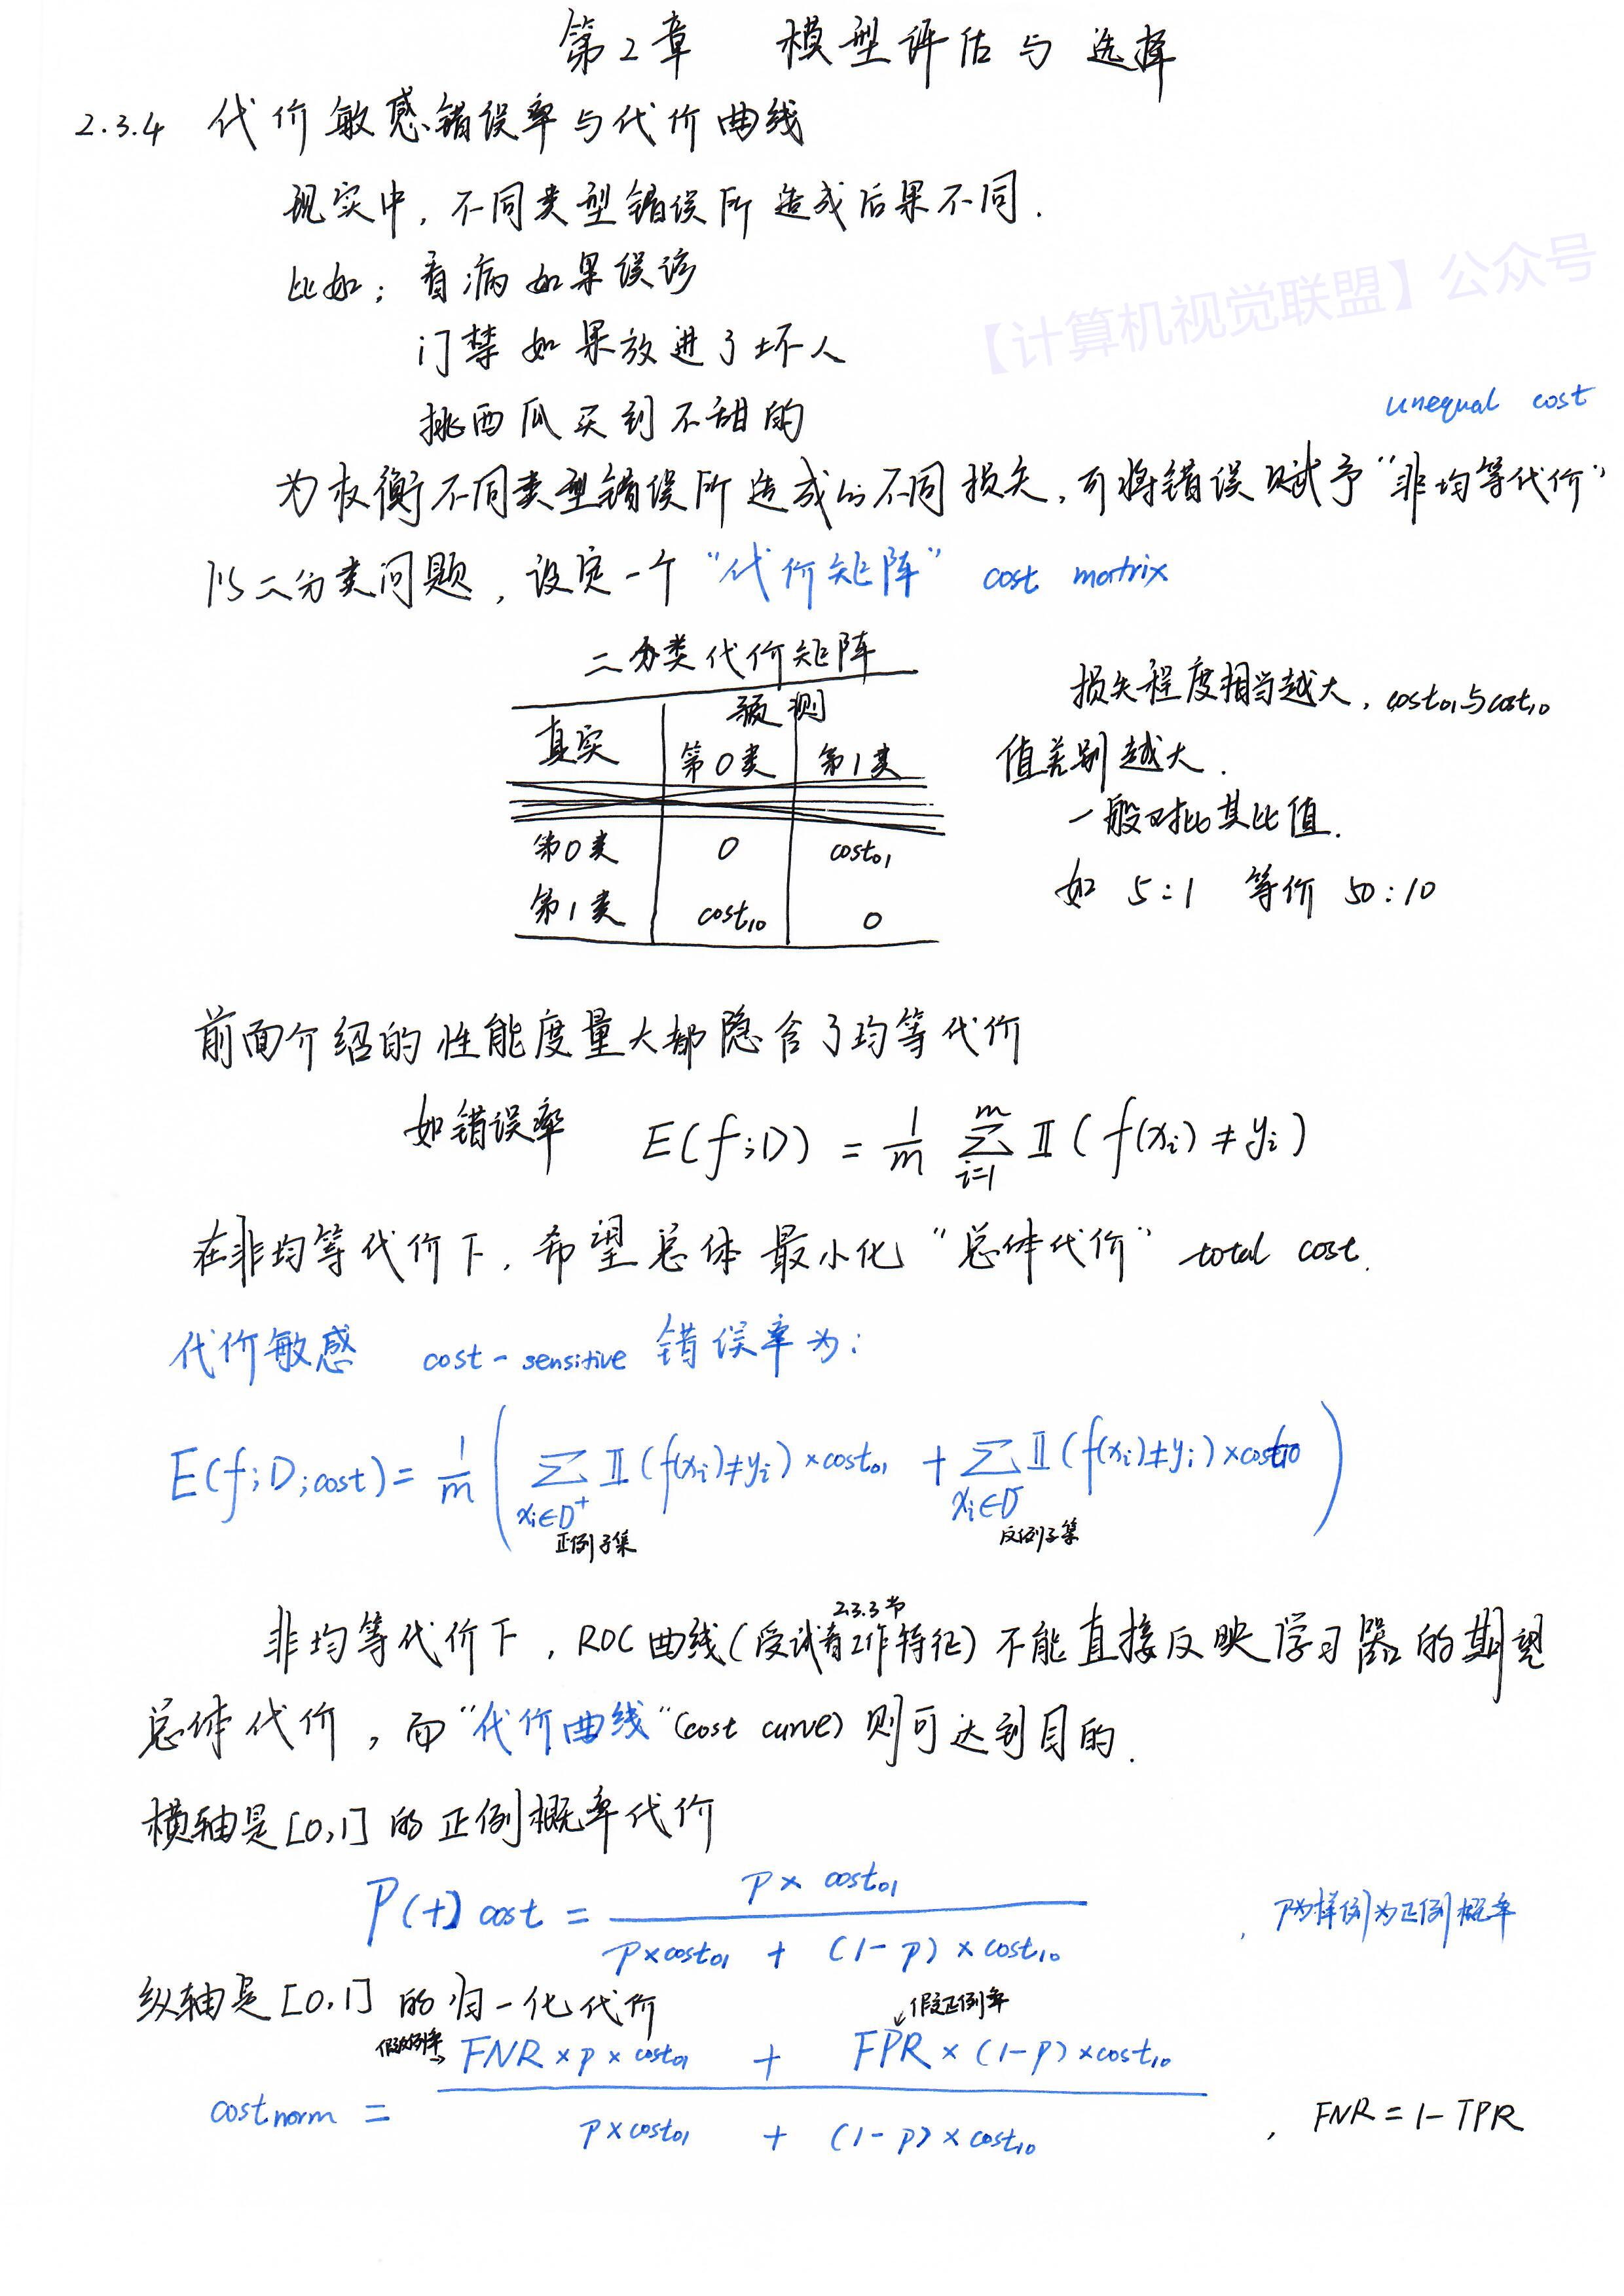 第2章 模型评估与选择
2.3.4 代价敏感错误率与代价曲线
现实中,不同类型错误所造成后果不同.
比如:看病如果误诊
【计算机视觉联盟】公众号
门禁如果放进了坏人
挑西瓜买到不甜的
unequal cost
为权衡不同类型错误所造成的不同损失,可将错误赋予"非均等代价"
以二分类问题,设定一个"代价矩阵" cost matrix
二分类代价矩阵
真实 预测
第0类 第1类
第0类 0 cost₀₁
第1类 cost₁₀ 0
损失程度相当越大,cost₀₁与cost₁₀
值差别越大.
一般对比其比值.
如 5:1 等价 50:10
前面介绍的性能度量大都隐含了均等代价
如错误率 E(f;D) = 1/m ∑ᵢ₌₁ᵐ 𝕀(f(xᵢ)≠yᵢ)
在非均等代价下,希望总体最小化"总体代价" total cost.
代价敏感 cost-sensitive 错误率为:
E(f;D;cost) = 1/m ( ∑_{xᵢ∈D⁺} 𝕀(f(xᵢ)≠yᵢ)×cost₀₁ + ∑_{xᵢ∈D⁻} 𝕀(f(xᵢ)≠yᵢ)×cost₁₀ )
正例子集 反例子集
2.3.3节
非均等代价下,ROC曲线(受试者工作特征)不能直接反映学习器的期望
总体代价,而"代价曲线"(cost curve)则可达到目的.
横轴是[0,1]的正例概率代价
P(+)cost = p×cost₀₁ / p×cost₀₁ + (1-p)×cost₁₀ , P为样例为正例概率
纵轴是[0,1]的归一化代价
假反例率→ ↙假正例率
cost norm = FNR×p×cost₀₁ + FPR×(1-p)×cost₁₀ / p×cost₀₁ + (1-p)×cost₁₀ , FNR=1-TPR